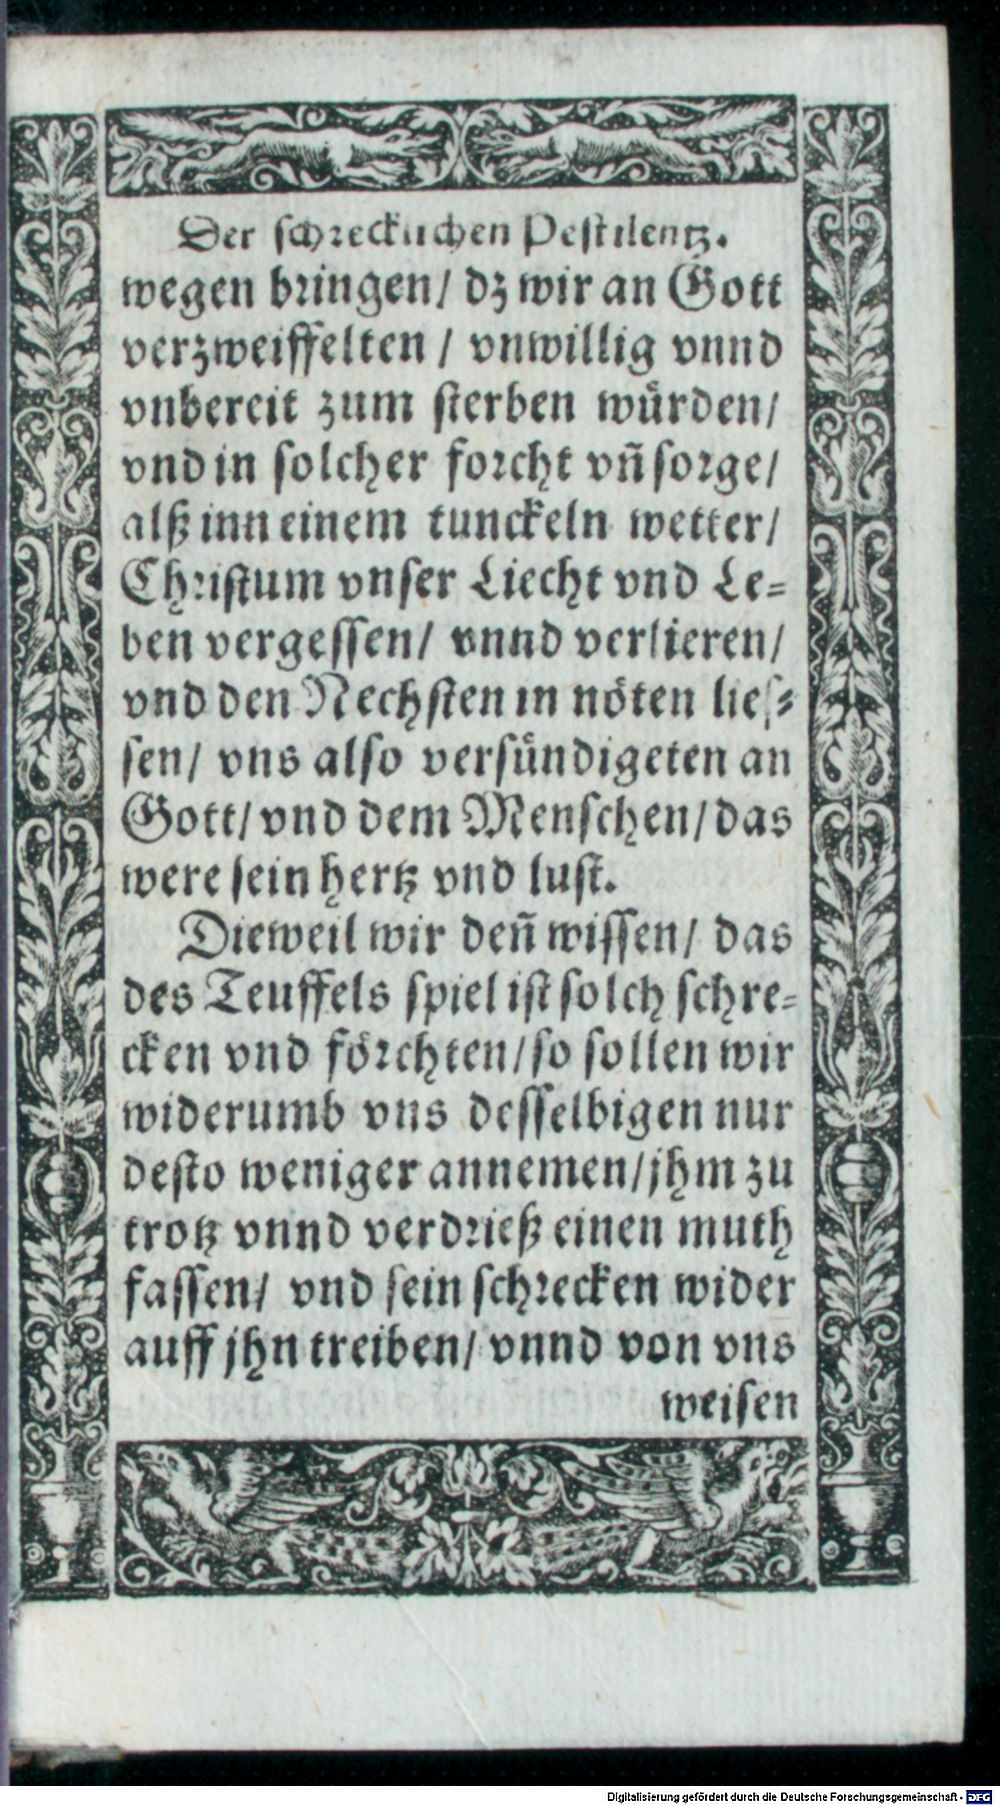 Der schrecklichen Pestilentz.
wegen bringen/ dz wir an Gott
verzweiffelten / vnwillig vnnd
vnbereit zum sterben wuͤrden/
vnd in solcher forcht vñ sorge/
alß inn einem tunckeln wetter/
Christum vnser Liecht vnd Le-
ben vergessen/ vnnd verlieren/
vnd den Nechsten in noͤten lies-
sen/ vns also versuͤndigeten an
Gott/ vnd dem Menschen/ das
were sein hertz vnd lust.
Dieweil wir deñ wissen/ das
des Teuffels spiel ist solch schre-
cken vnd foͤrchten/ so sollen wir
widerumb vns desselbigen nur
desto weniger annemen/ jhm zu
trotz vnnd verdrieß einen muth
fassen/ vnd sein schrecken wider
auff jhn treiben/ vnnd von vns
weisen
Digitalisierung gefördert durch die Deutsche Forschungsgemeinschaft - DFG